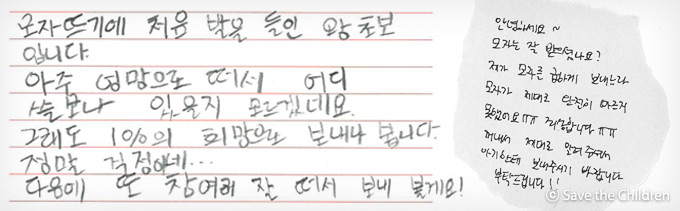 모자뜨기에 처음 발을 들인 왕초보
입니다.
아주 엉망으로 떠서 어디
쓸모나 있을지 모르겠네요.
그래도 1%의 희망으로 보내나 봅니다.
정말 걱정이네...
다음에 또 참여해 잘 떠서 보내 볼게요!
안녕하세요~
모자는 잘 받으셨나요?
제가 모자를 급하게 보내느라
모자가 제대로 안 마르지
못했어요ㅠㅠ 죄송합니다ㅠㅠ
꺼내서 제대로 말려주셔서
아기한테 보내주시기 바랍니다
부탁드립니다!!
© Save the Children